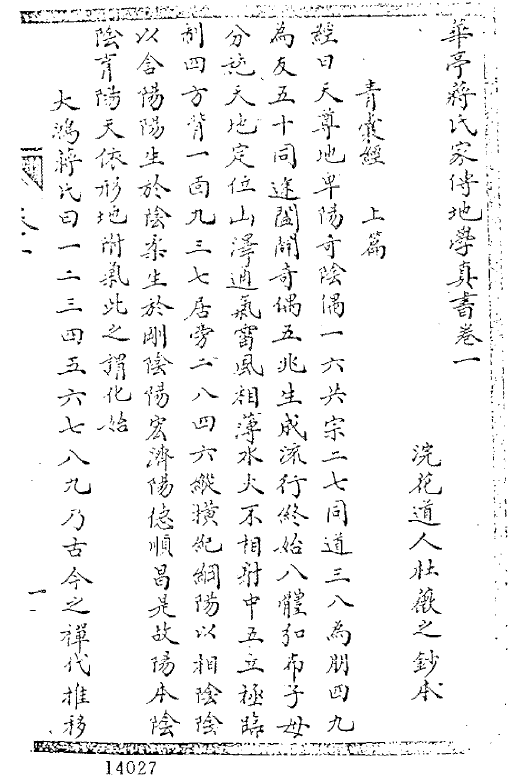 華亭蔣氏家傳地學真書卷一
浣花道人杜薇之鈔本
青囊經 上篇
經曰天尊地卑陽奇陰偶一六共宗二七同道三八為朋四九
為友五十同途闔闢奇偶五兆生成流行終始八體弘布子母
分施天地定位山澤通氣雷風相薄水火不相射中五立極臨
制四方背一面九三七居旁二八四六縱横紀綱陽以相陰陰
以含陽陽生於陰柔生於剛陰陽宏濟陽德順昌是故陽本陰
陰育陽天依形地附氣此之謂化始
大鴻蔣氏曰一二三四五六七八九乃古今之禪代推移
一
14027